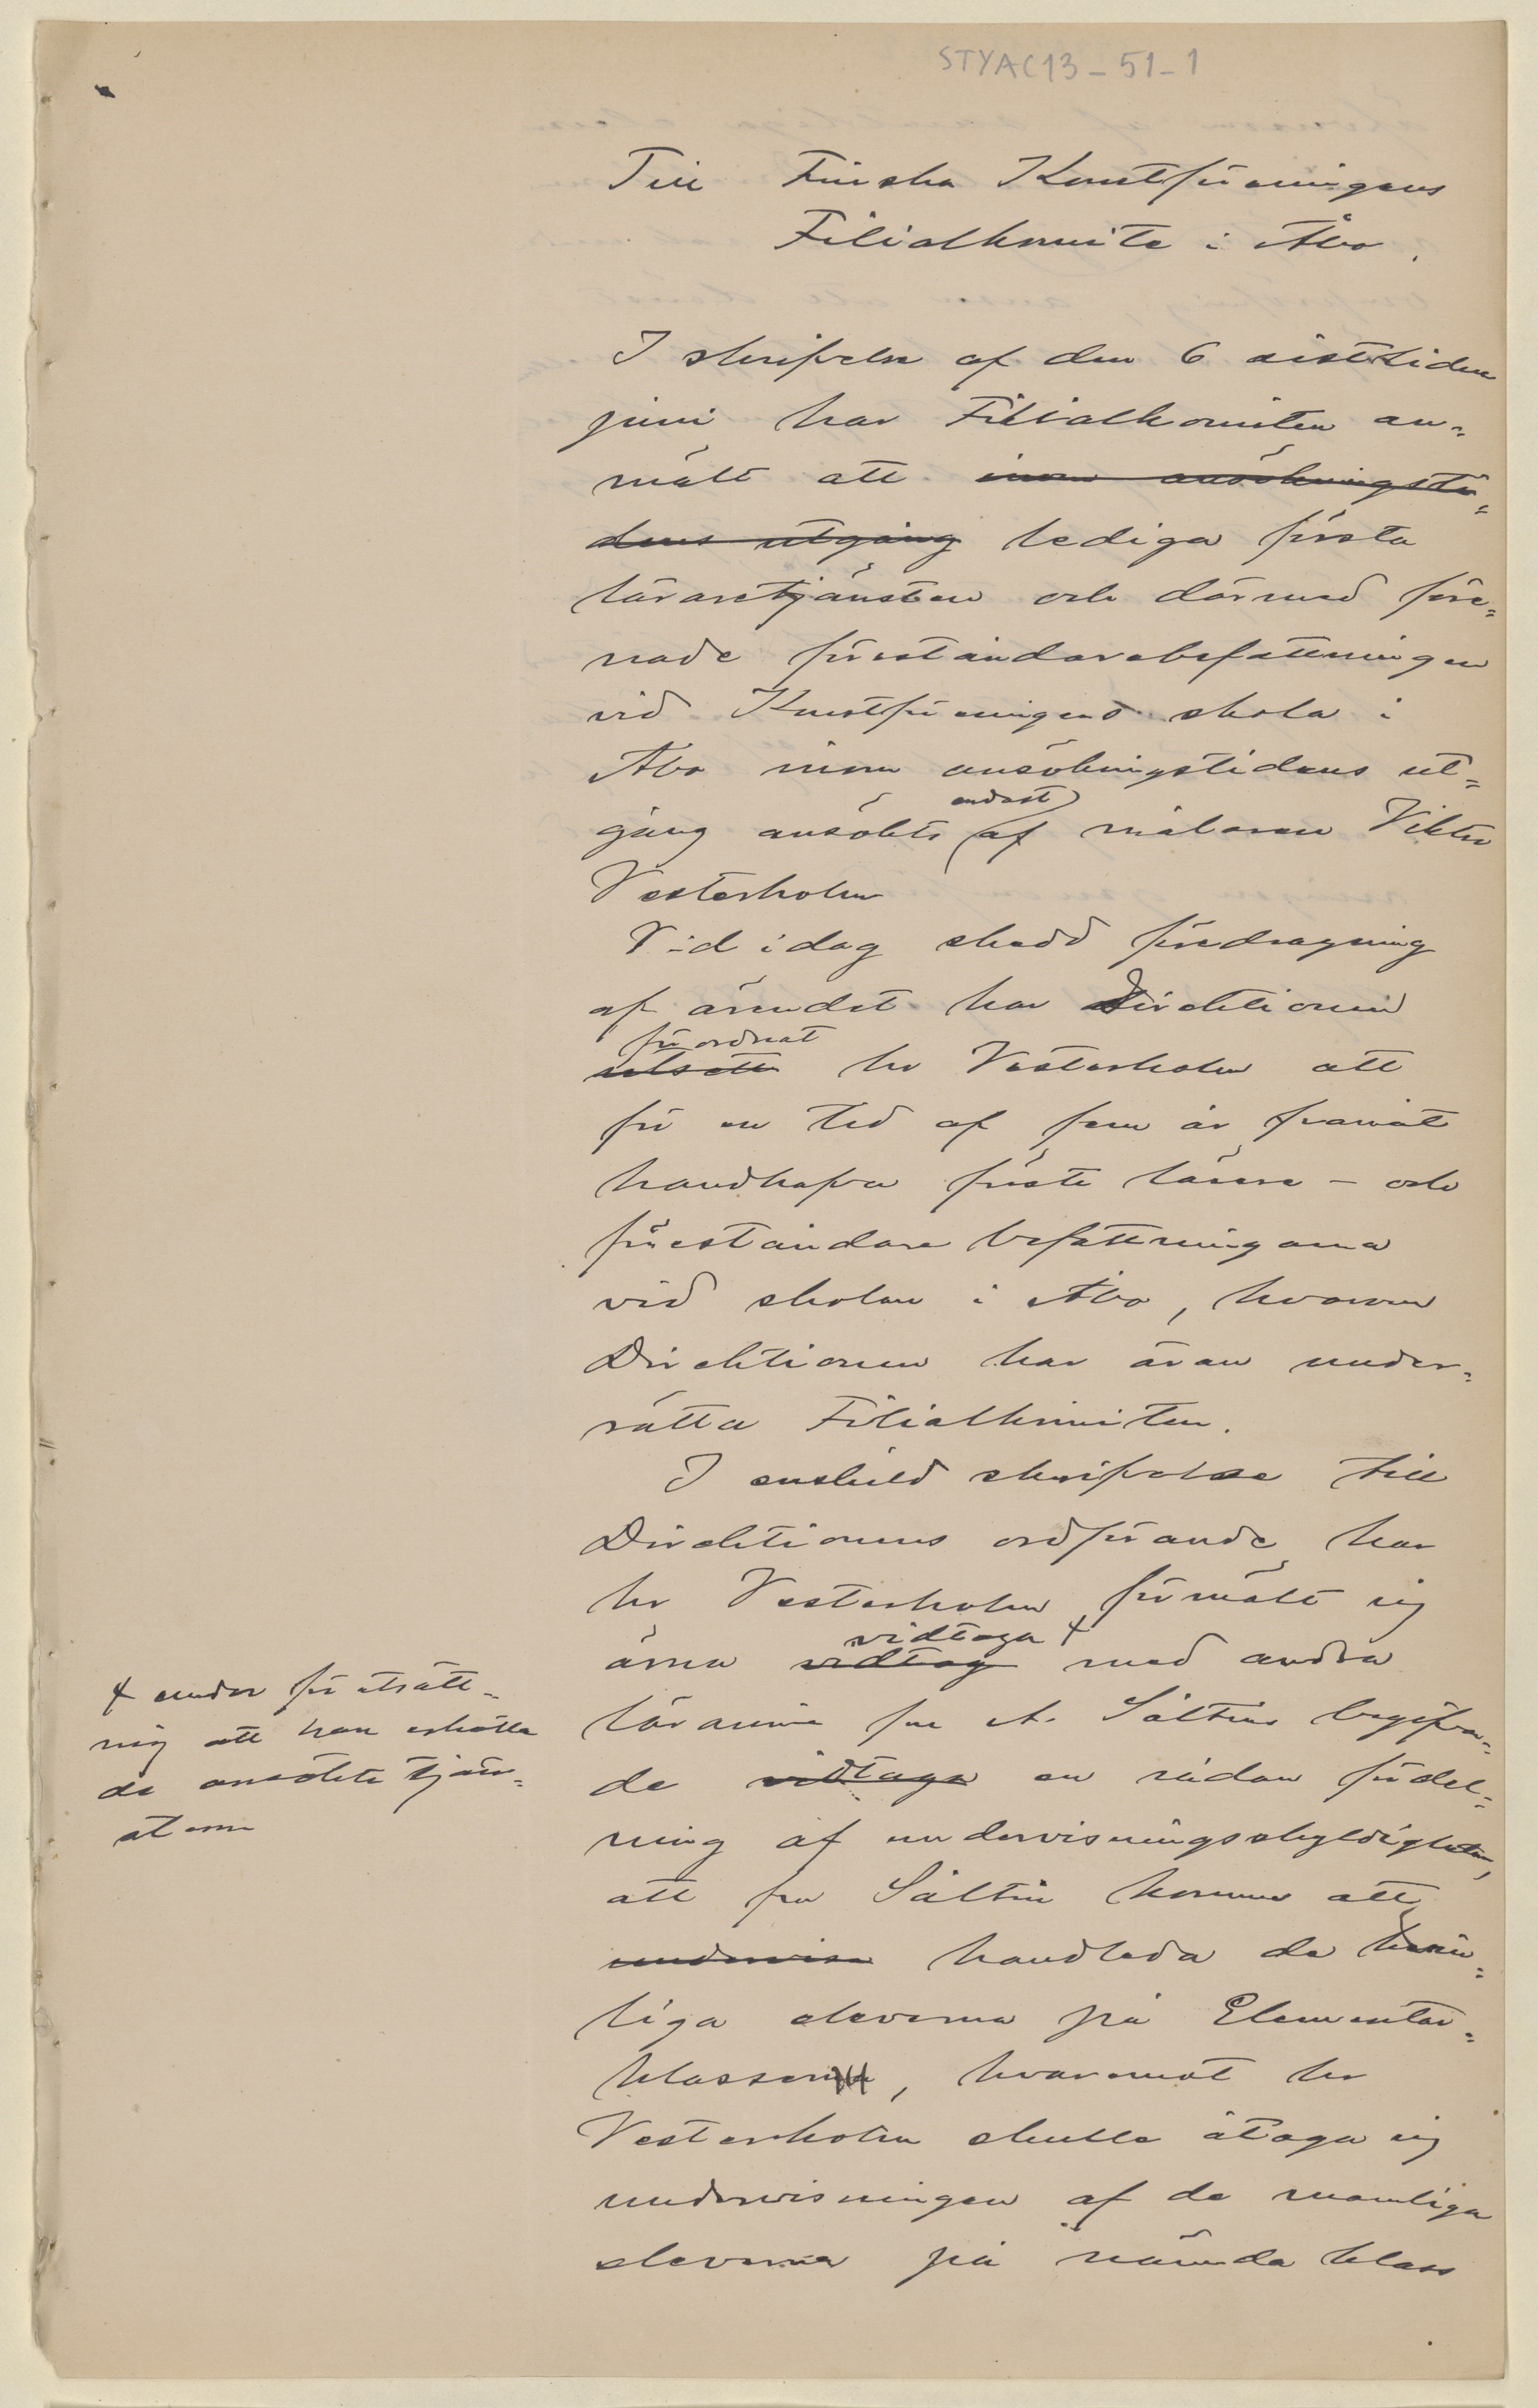 STYAC13-51-1
Till Finska Konstföreningens
Filialkomite i Åbo.
I skrifvelse af den 6 sistliden
juni har Filialkomiten an=
mält att inom ansökningsti=
dens utgång lediga första
läraretjänsten och därmed före=
nade föreståndarebefattningen
vid Konstföreningens skola i
Åbo inom ansökningstidens ut=
endast
gång ansökts af målaren Viktor
Vesterholm
Vid i dag skedd föredragning
af ärendet har Direktionen
förordnat
utsett hr Vesterholm att
för en tid af fem år framåt
handhafva förste lärare- och
föreståndare befattningarna
vid skolan i Åbo, hvarom
Direktionen har äran under=
rätta Filialkomiten.
I enskild skrifvelse till
Direktionens ordförande har
hr Vesterholm förmält sig
vidtaga +
ärna vidtag med andra
lärarinnan fru A. Sältin begifva=
de vidtaga en sådan fördel=
ning af undervisningsskyldigheten,
att fru Sältin komme att
undervisa handleda de kvin=
liga eleverna på Elementar=
klasserna, hvaremot hr
Vesterholm skulle åtaga sig
undervisningen af de manliga
eleverna på nämda klass
+ under förutsätt=
ning att han erhölle
de ansökta tjän=
sterna